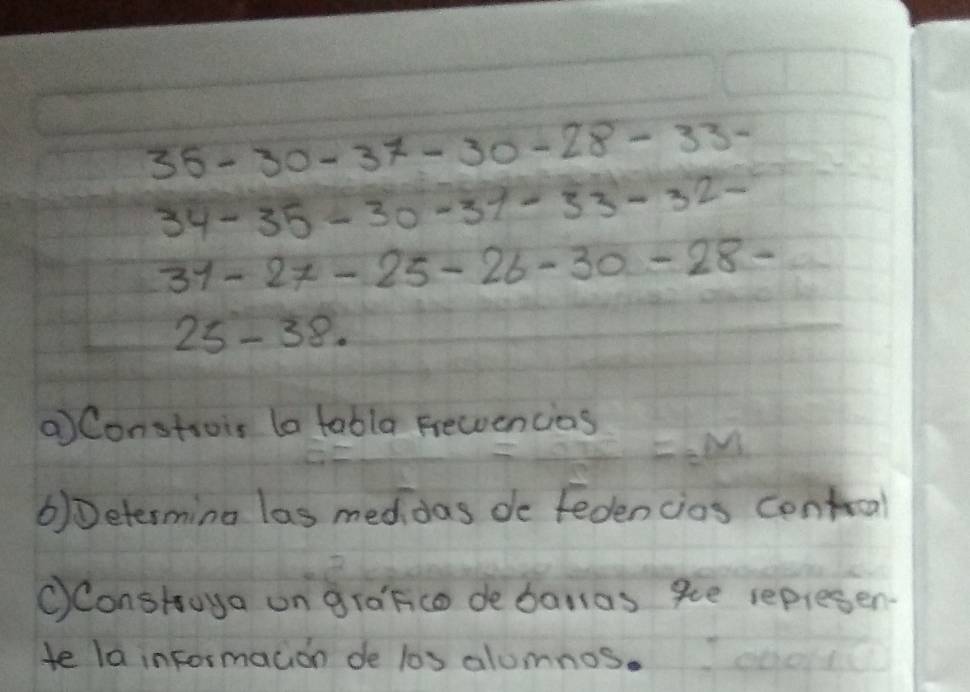 35-30-37-30-28-33-
34-35-30-31-33-32-
31-27-25-26-30-28-
25-38.
a) Construir la tabla Frecuencias
b) Determina las medidas de tedencias central
c) Construya un gráfico de barras que represen-
te la información de los alumnos.